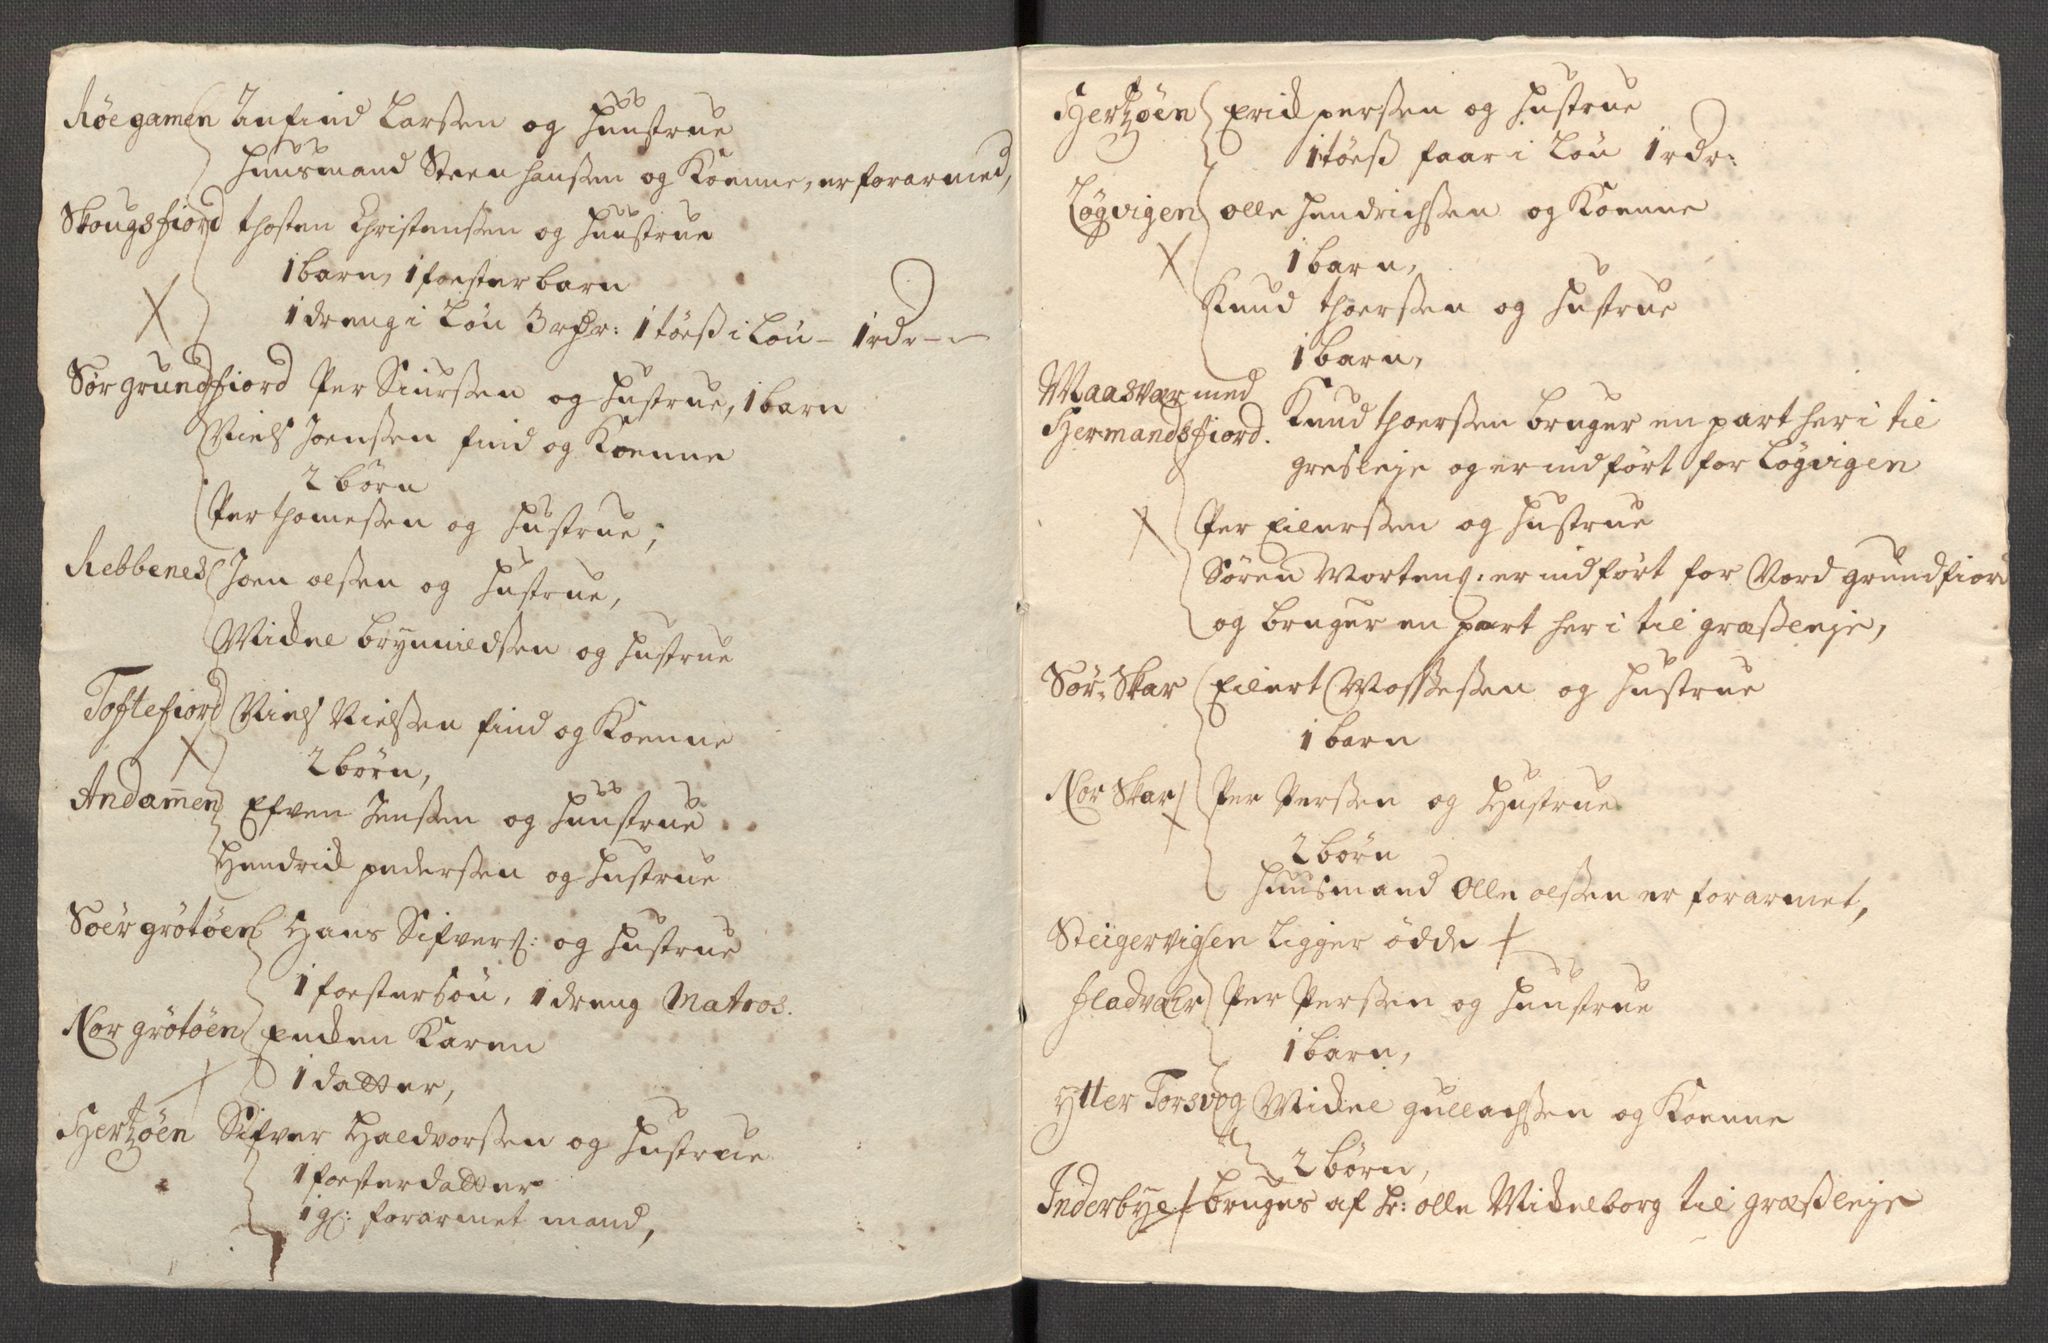 Röegamen Anfind Larssen og Huustrue
Huusmand Steen Hanssen og Koenne, er forarmed,
Skougsfiord Thosten Christenssen og Huustrue
1 barn, 1 foesterbarn
1 dreng i Lön 3 rdr: 1 töeß i Lön - 1 rdr -
Sör grundfiord Per Siurssen og Hustrue, 1 barn
Niels Joenssen find og Koenne
2 börn
Per Thomessen og Hustrue,
Rebbenes Joen olssen og Hustrue,
Mickel brynnildssen og Hustrue
Toftefiord Niels Nielssen find og Koenne
2 börn,
Andamen Efven Jenssen og Huustrue
Hendrick pederssen og Hustrue
Soer grötöen Hans Sifvers: og Hustrue
1 foestersön, 1 dreng Matros.
Nor grötöen Encken Karen
1 datter,
Hertzöen Sifver Haldvorssen og Hustrue
1 foesterdatter
1 gl: forarmet mand,
Hertzöen Erick perssen og Hustrue
1 töeß faar i Lön 1 rdr:
Løgvigen olle Hendrichssen og Koenne
1 barn,
Knud Thoerssen og Hustrue
1 barn,
Maasvær med
Hermandsfiord. Knud Thoerssen bruger en part her i til
gresleje og er indfört for Løgvigen
Per Eilerssen og Hustrue
Sören Mortens: er indfört for Nord grundfiord
og bruger en part her i til græsleje,
Sör-Skar Eilert Mossessen og Hustrue
1 barn
Nor Skar Per Perssen og Hustrue
2 börn
Huusmand Olle olssen er forarmet,
Steigervigen Ligger ödde
fladvær Per Perssen og Huustrue
1 barn,
Ytter Torsvog Mickel gullachssen og Koenne
2 börn,
Inderbye bruges af Hr: olle Mickelborg til græsleje